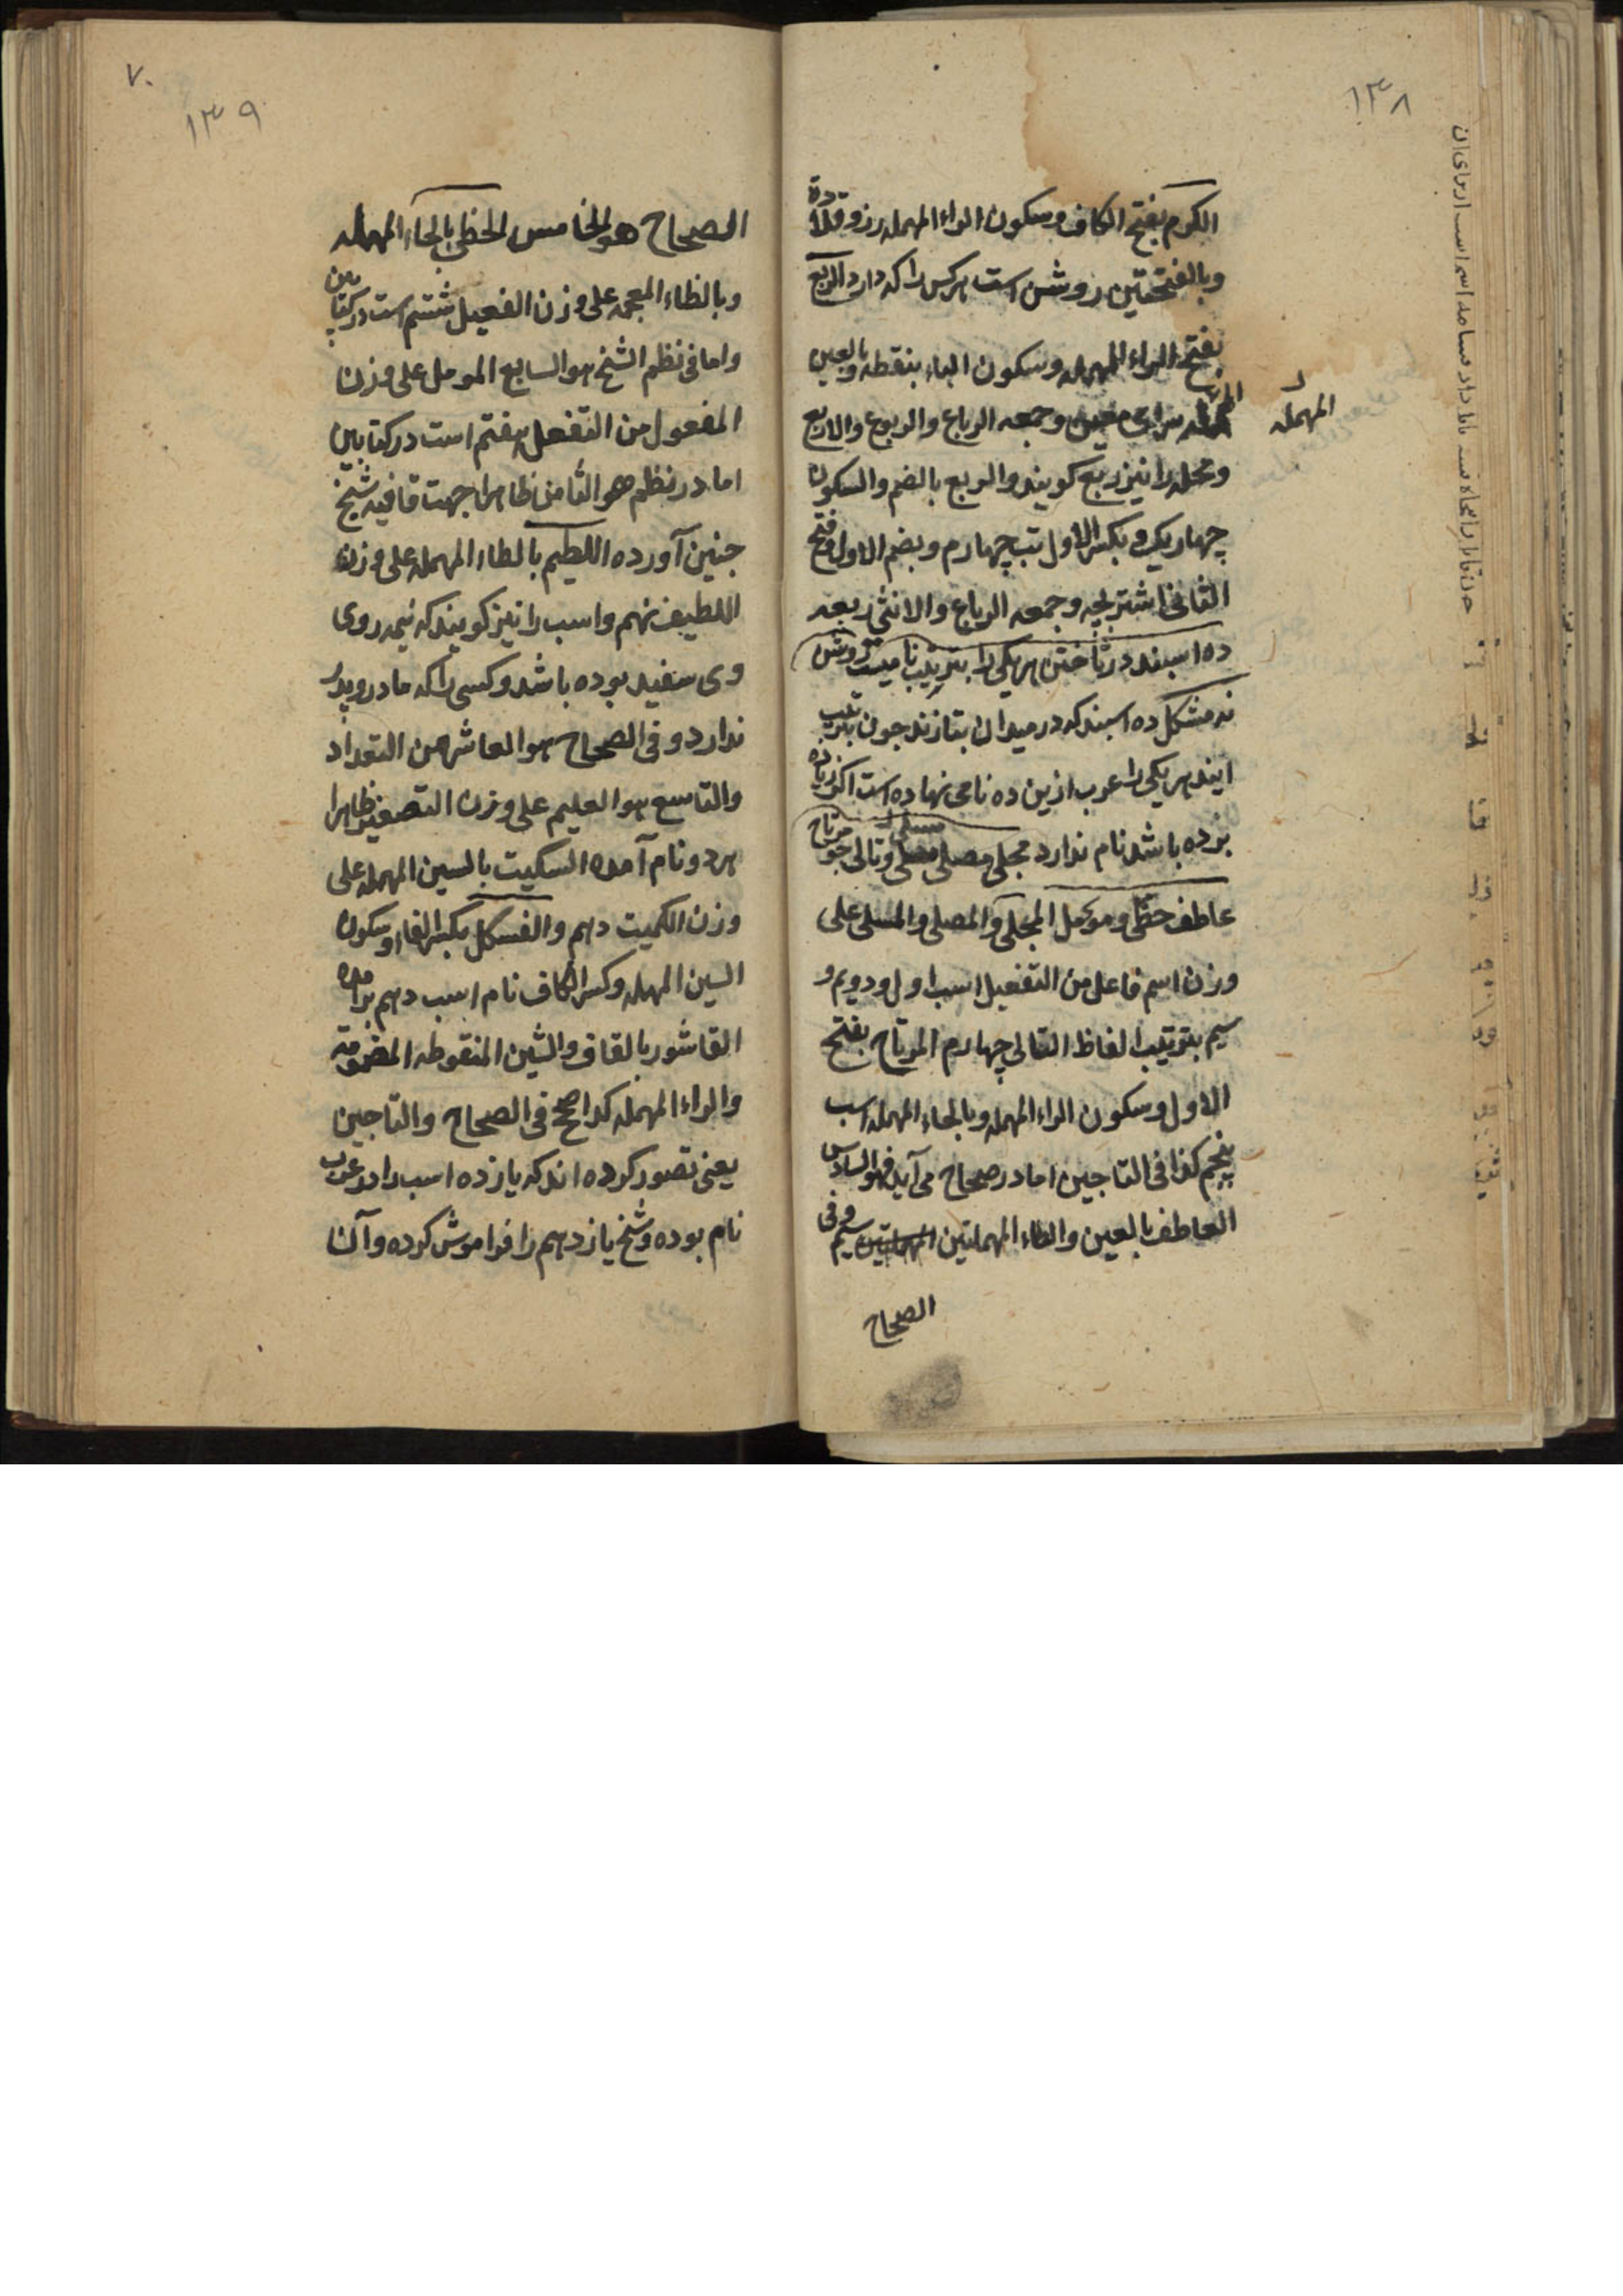 ١٣٨
الکرم بفتح الکاف وسکون الراء المهمله رز و قلاده
وبالفتحتین روشن است هرکس را که دارد الربع
بفتح الراء المهمله وسکون الباء بنقطه وبالعین
المهمله سرای معین وجمعه الرباع والربوع والاربع
المهمله
ومحله را نیز ربع کویند والربع بالضم والسکون
چهار یک و بکسر الاول تب چهارم وبضم الاول وفتح
الثانی اشتر بچه وجمعه الرباع والانثی ربعه
ده اسبند در تاختن هریکی را بترتیب نامیست روشن
نه مشکل ده اسبند که در میدان بتازند جون بترتیب
ایند هریکی را عرب ازین ده نامی نهاده است اکر زیاده
بزده باشد نام ندارد مجلی مصلی مسلی وتالی چو مرتاح
عاطف حظی و مومل المجلی والمصلی والمسلی علی
وزن اسم فاعل من التفعیل اسب اول و دویم و
سیم بترتیب الفاظ التالی چهارم المرتاح بفتح
الاول وسکون الراء المهمله وبالحاء المهمله اسب
پنجم کذا فی التاجین اما در صحاح می آید فهو السادس
العاطف بالعین والطاء المهملتین سیم وفی
الصحاح
٧٠
١٣٩
الصحاح هو الخامس الحظی بالحاء المهمله
وبالظاء المعجمه علی وزن الفعیل ششم است در کتابین
واما فی نظم الشیخ هو السابع المومل علی وزن
المفعول من التفعل هفتم است در کتابین
اما در نظم هو الثامن ظاهرا جهت قافیه شیخ
جنین آورده اللطیم بالطاء المهمله علی وزن
اللطیف نهم واسب را نیز کویند که نیمه روی
وی سفید بوده باشد وکسی را که مادر وپدر
ندارد و فی الصحاح هو العاشر من التعداد
والتاسع هو العلیم علی وزن التصغیر ظاهرا
هر دو نام آمده السکیت بالسین المهمله علی
وزن الکمیت دهم والفسکل بکسر الفاء وسکون
السین المهمله وکسر الکاف نام اسب دهم بر آمده
القاشور بالقاف والشین المنقوطه المضمومة
والراء المهمله کذا صح فی الصحاح والتاجین
یعنی تصور کرده اند که یازده اسب را در عرب
نام بوده وشیخ یازدهم را فراموش کرده و آن